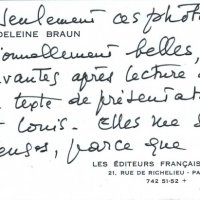 Seulement ces phot
DELEINE BRAUN
ionnellement belles,
vantes après lecture d
texte de présentat
t Louis. Elles ne s
enges, parce que
LES ÉDITEURS FRANÇAIS
21, RUE DE RICHELIEU - PA
742 51-52 +